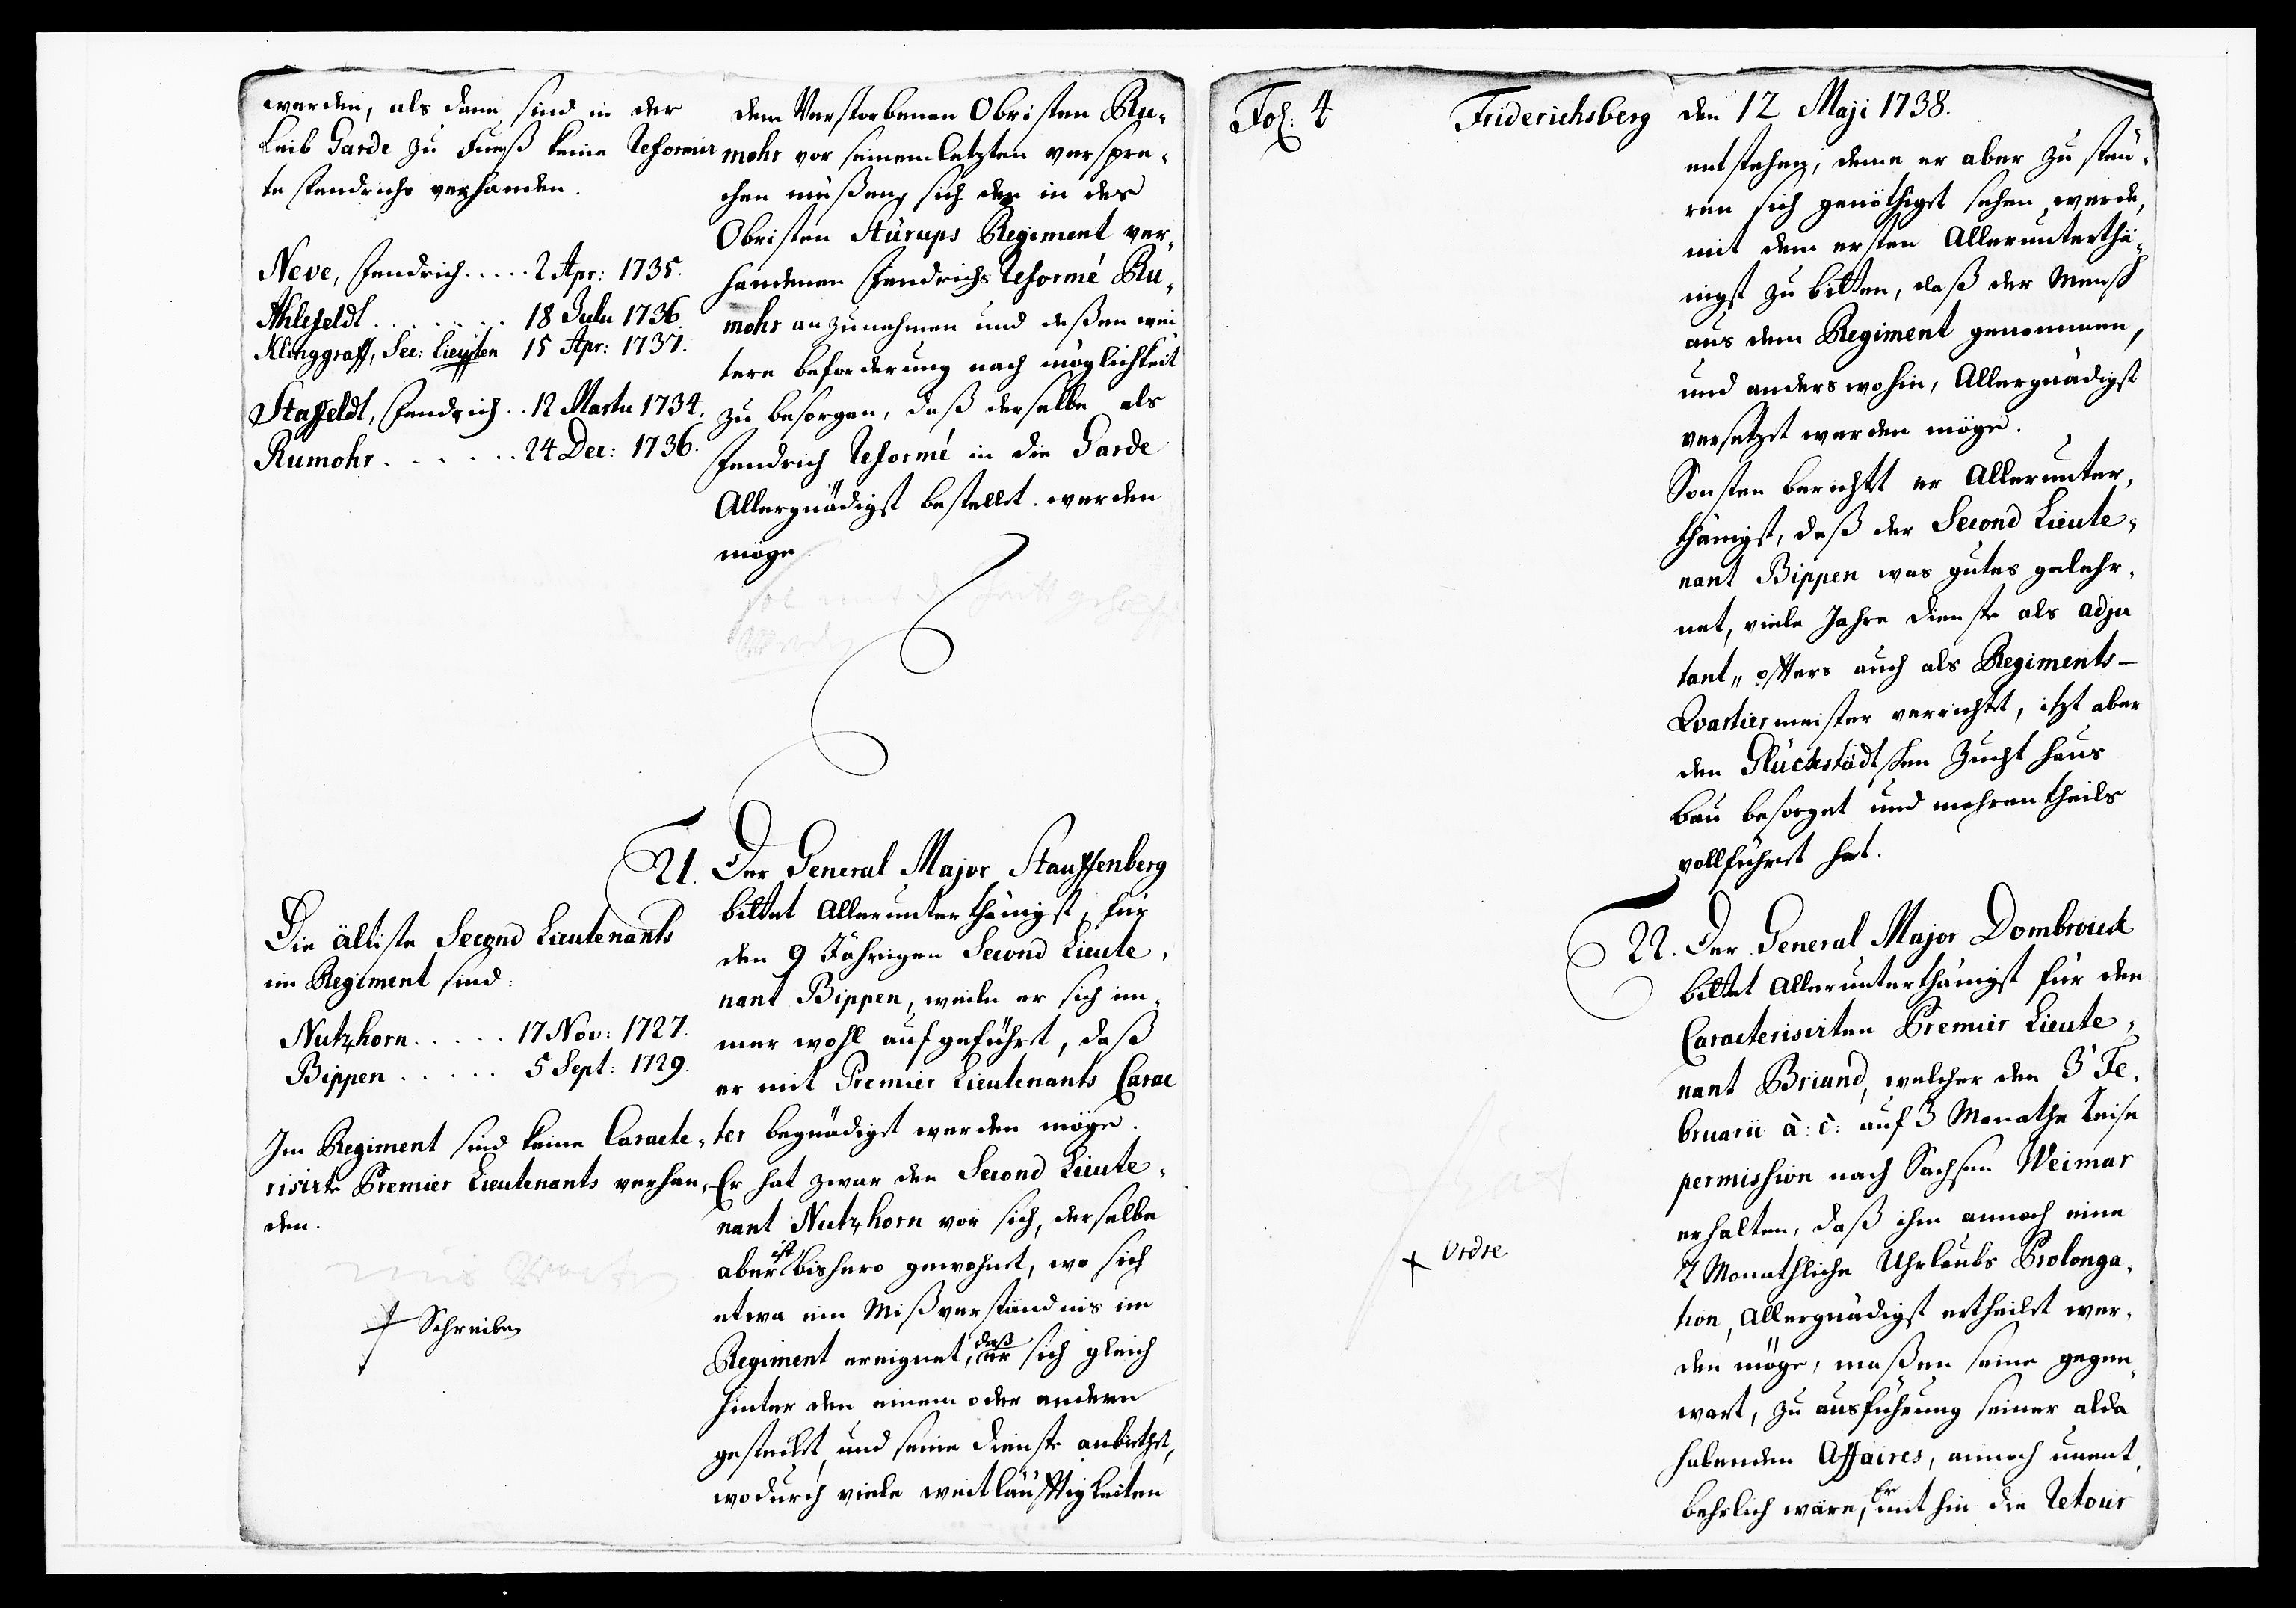 werden, als dann sind in der
Leib Garde zu Fueß keine Reformir
te Fendrichs verhanden.
Neve, Fendrich..... 2 Apr: 1735.
Ahlefeldt........ 18 Julii 1736
Klinggraff, Sec: Lieuten 15 Apr: 1737.
Staffeldt, Fendrich.. 12 Martii 1734.
Rumohr...... 24 Dec: 1736.
Die ältiste Second Lieutenants
im Regiment sind:
Nutzhorn..... 17 Nov: 1727.
Bippen..... 5 Sept: 1729.
Im Regiment sind keine Caracte-
risirte Premier Lieutenants verhan-
den.
Schreiben
dem Verstorbenen Obristen Ru-
mohr vor seinem letzten verspre-
chen müßen, sich den in des
Obristen Stürups Regiment ver-
handenen Fendrichs Reformé Ru-
mohr anzunehmen und deßen wei
tere beforderung nach möglichkeit
zu besorgen, daß derselbe als
Fendrich Reformé in die Garde
Allergnädigst bestellet werden
möge.
21. Der General Major Stauffenberg
bittet Allerunterthänigst, für
den 9 Jährigen Second Lieute-
nant Bippen, weile er sich im-
mer wohl aufgeführet, daß
er mit Premier Lieutenants Carac
ter begnädigt werden möge.
Er hat zwar den Second Lieute-
nant Nutzhorn vor sich, derselbe
aber ist bishero gewohnet, wo sich
etwa ein Mißverständnis im
Regiment ereignet, daß er sich gleich
hinter den einem oder andern
gesteckt, und seine Dienste anbiethet,
wodurch viele weitläufftigkeiten
Fol: 4
Friderichsberg den 12 Maji 1738.
entstehen, deme er aber zu steu-
ren sich genöthiget sehen werde,
mit dem ersten Allerunterthä-
nigst zu bitten, daß der Mensch
aus dem Regiment genommen,
und anders wohin, Allergnädigst
versetzet werden möge.
Sonsten berichtet er Allerunter-
thänigst, daß der Second Lieute-
nant Bippen was gutes gelehr-
net, viele Jahre Dienste als Adju
tant, öffters auch als Regiments-
Qvartiermeister verrichtet, itzt aber
den Glückstädtschen Zucht Haus
bau besorget und mehrentheils
vollführet hat.
22. Der General Major Dombroick
bittet Allerunterthänigst für den
Caracterisirten Premier Lieute-
nant Briand, welcher den 3' Fe-
bruarii a: c: auf 3 Monathe Reise
permission nach Sachsen Weimar
erhalten, daß ihm annoch eine
2 Monathliche Uhrlaubs Prolonga-
tion, Allergnädigst ertheilet wer-
den möge, maßen seine gegen-
wart, zu ausführung seiner alda
habenden Affaires, annoch unent-
behrlich wäre, Er mithin die Retour
Ordre